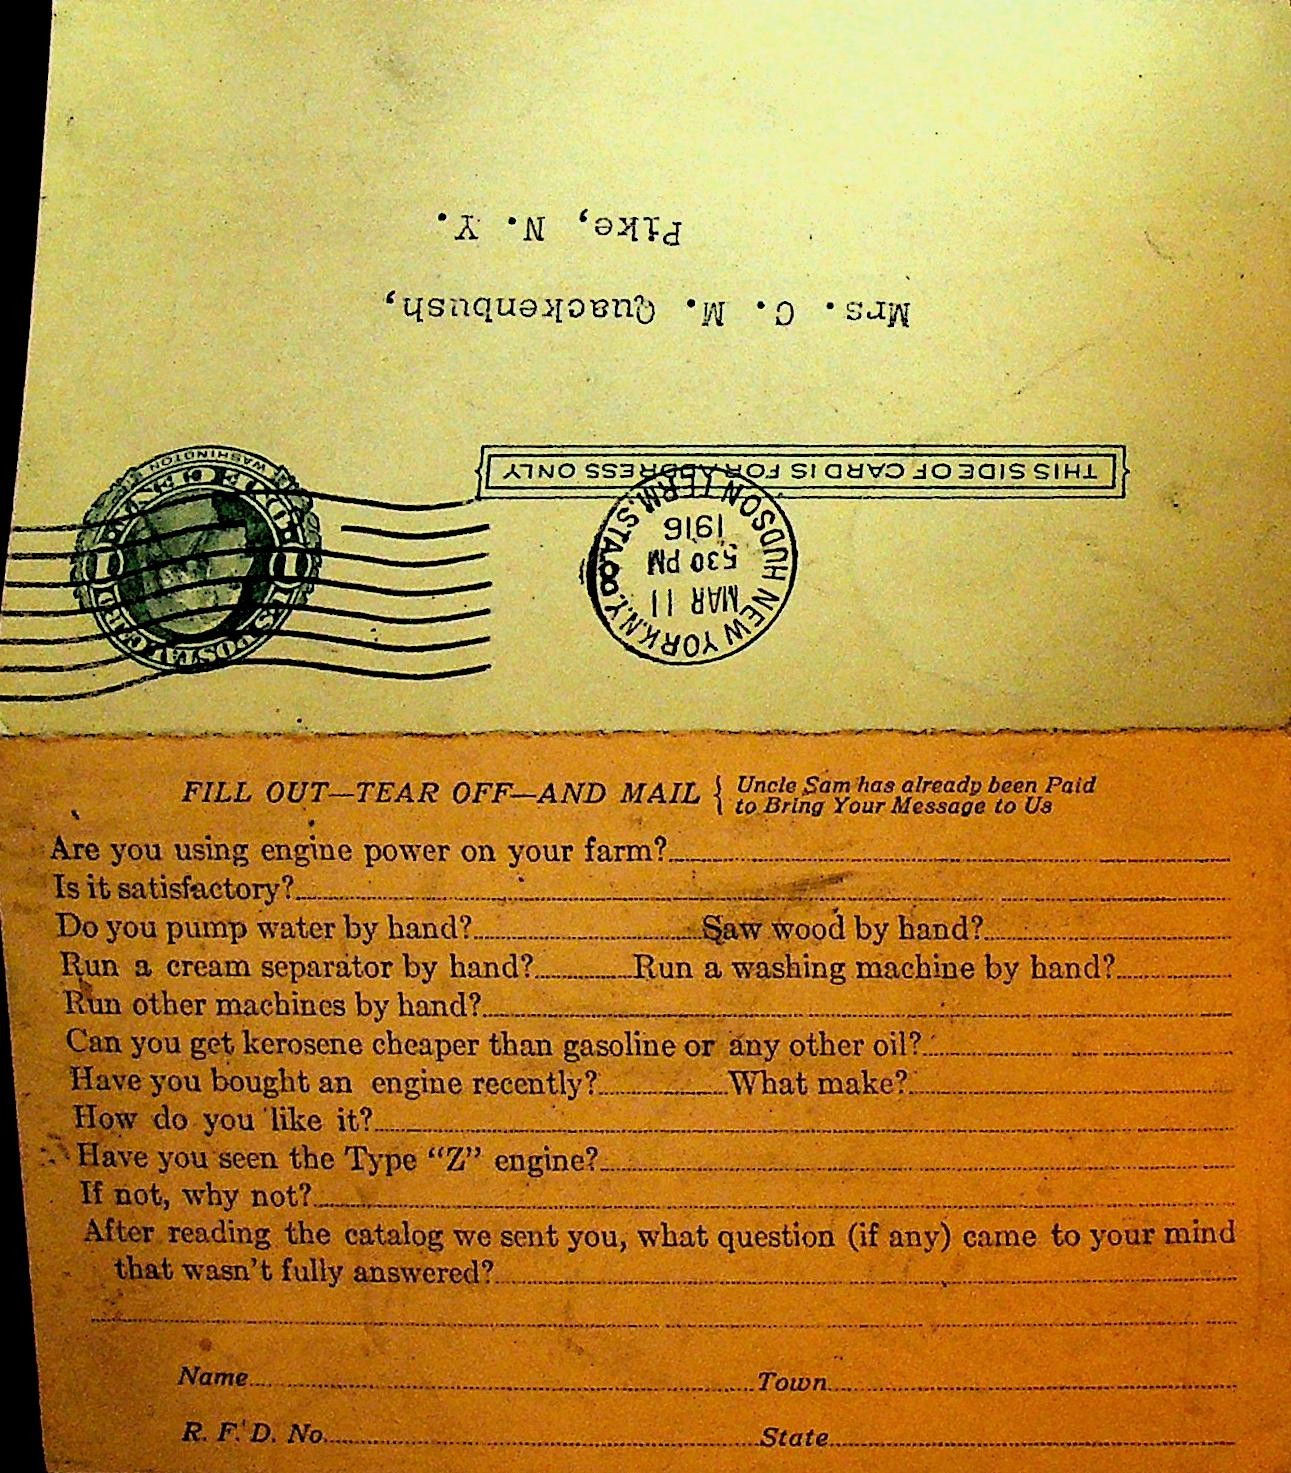 THIS SIDE OF CARD IS FOR ADDRESS ONLY
NEW YORK, N.Y.
HUDSON TERM. STA.
MAR 11
530 PM
1916
WASHINGTON
Mrs. C. M. Quackenbush,
Pike, N. Y.
FILL OUT—TEAR OFF—AND MAIL { Uncle Sam has already been Paid
to Bring Your Message to Us
Are you using engine power on your farm?
Is it satisfactory?
Do you pump water by hand? Saw wood by hand?
Run a cream separator by hand? Run a washing machine by hand?
Run other machines by hand?
Can you get kerosene cheaper than gasoline or any other oil?
Have you bought an engine recently? What make?
How do you like it?
Have you seen the Type “Z” engine?
If not, why not?
After reading the catalog we sent you, what question (if any) came to your mind
that wasn't fully answered?
Name Town
R. F. D. No. State